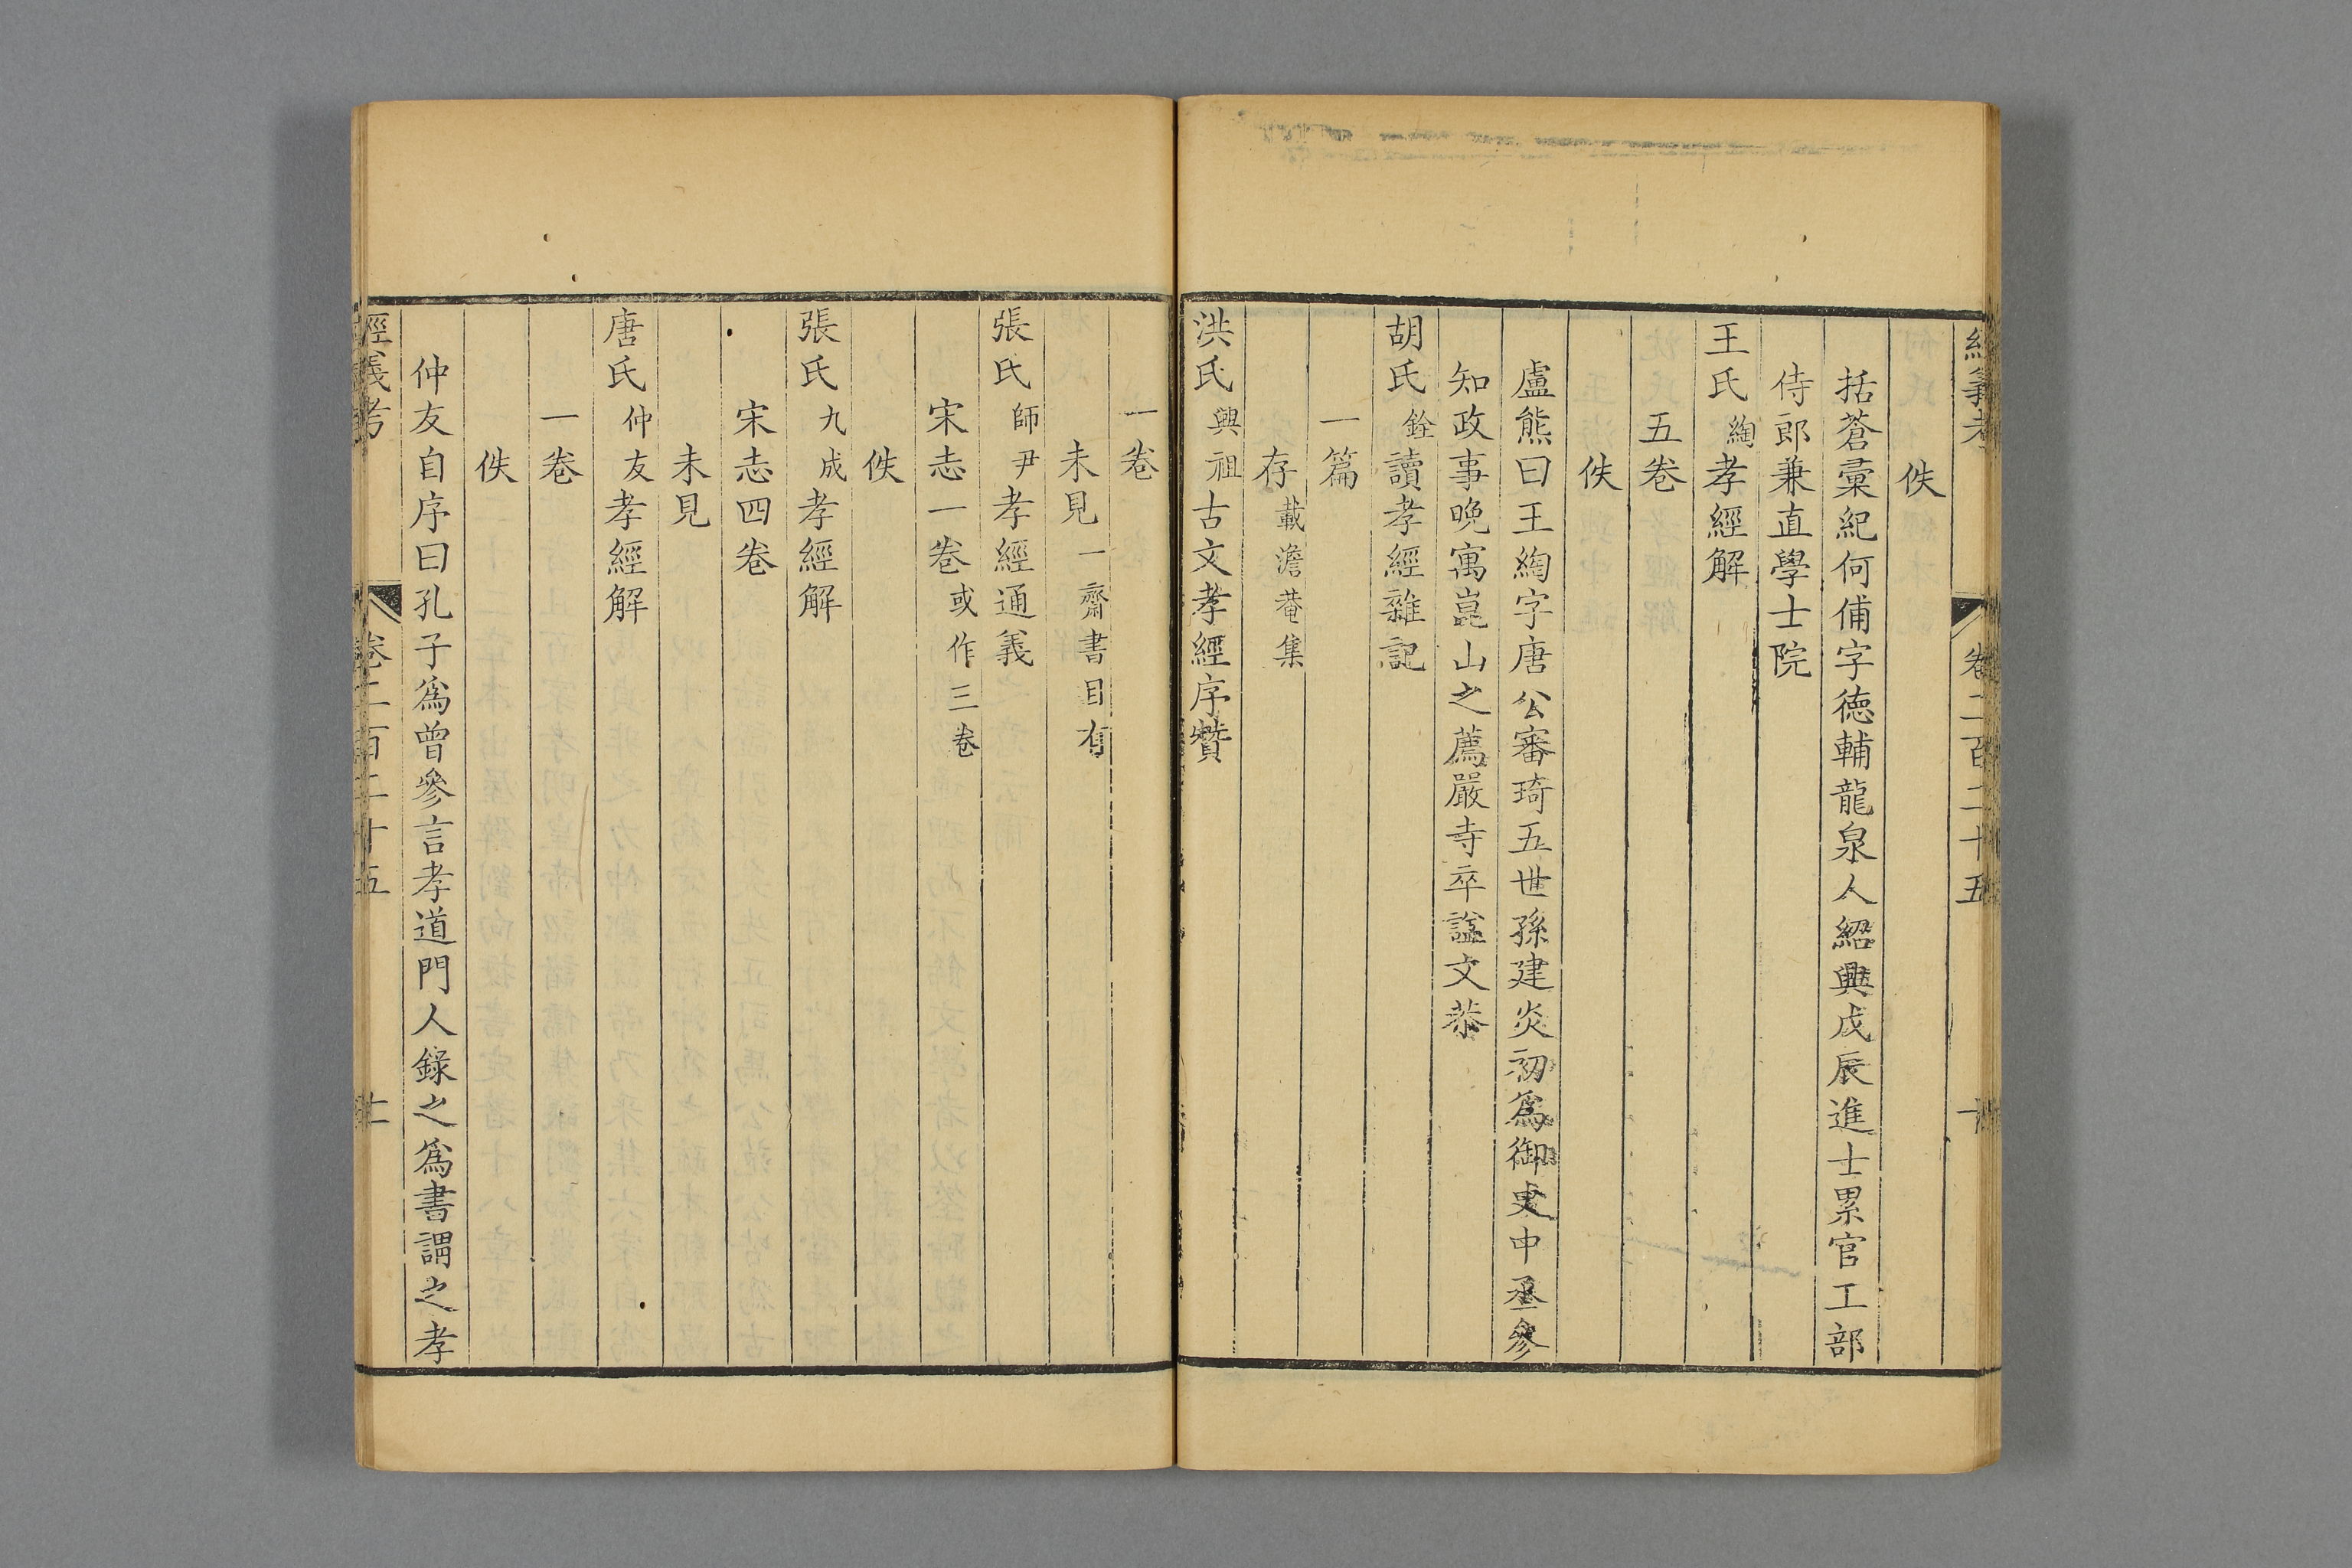 經義考 卷二百二十五
佚
括蒼彙紀何俌字德輔龍泉人紹興戊辰進士累官工部
侍郎兼直學士院
王氏綯孝經解
五卷
佚
盧熊曰王綯字唐公審琦五世孫建炎初爲御史中丞參
知政事晚寓崑山之薦嚴寺卒諡文恭
胡氏銓讀孝經雜記
一篇
存載澹菴集
洪氏興祖古文孝經序贊
一卷
未見一齋書目有
張氏師尹孝經通義
宋志一卷或作三卷
佚
張氏九成孝經解
宋志四卷
未見
唐氏仲友孝經解
一卷
佚
仲友自序曰孔子爲曾參言孝道門人錄之爲書謂之孝
經義考 卷二百二十五